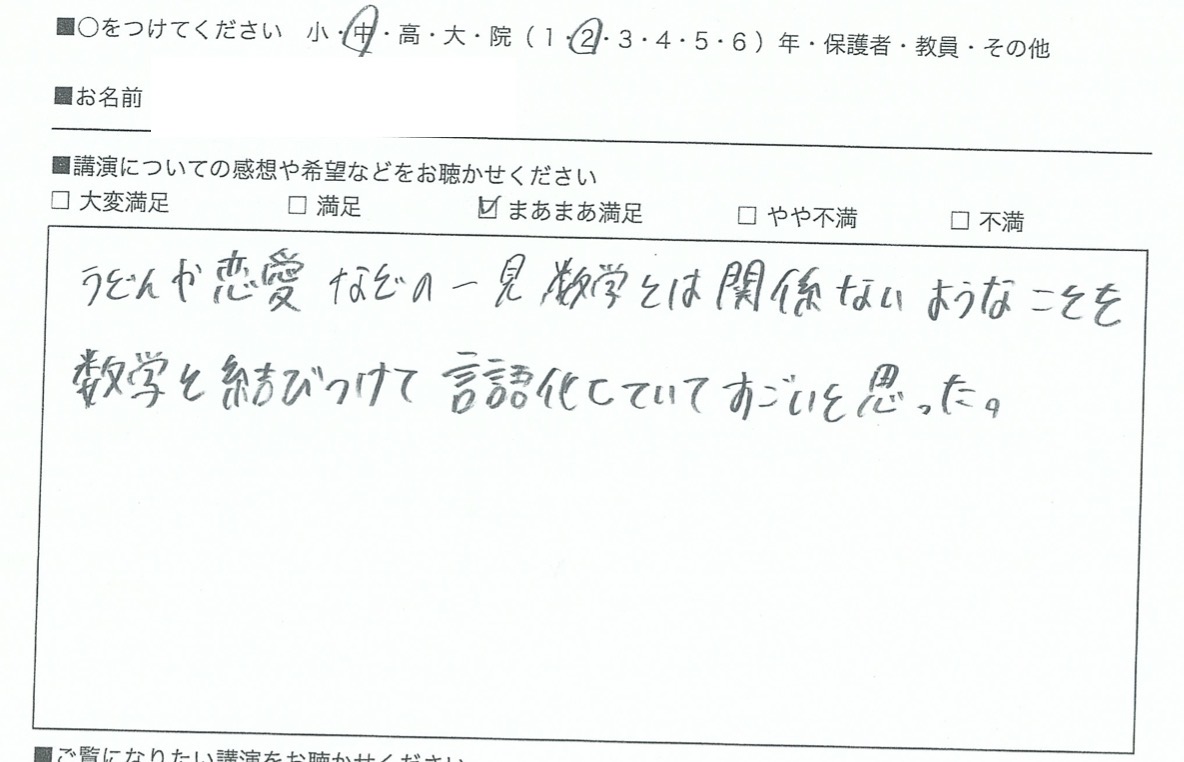 ■○をつけてください 小・中・高・大・院（1・2・3・4・5・6）年・保護者・教員・その他
■お名前
■講演についての感想や希望などをお聴かせください
□ 大変満足 □ 満足 ☑ まあまあ満足 □ やや不満 □ 不満
うどんや恋愛などの一見数学とは関係ないようなことを
数学と結びつけて言語化していてすごいと思った。
■ご覧になりたい講演をお聴かせください